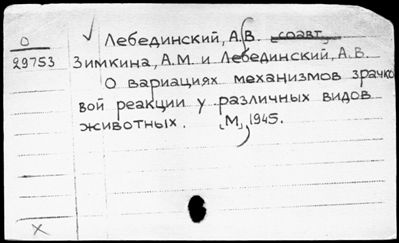 О
29753
✓ Лебединский, А.В. соавт.
Зимкина, А.М. и Лебединский, А.В.
О вариациях механизмов зрачко
вой реакции у различных видов
животных. [М], 1945.
X